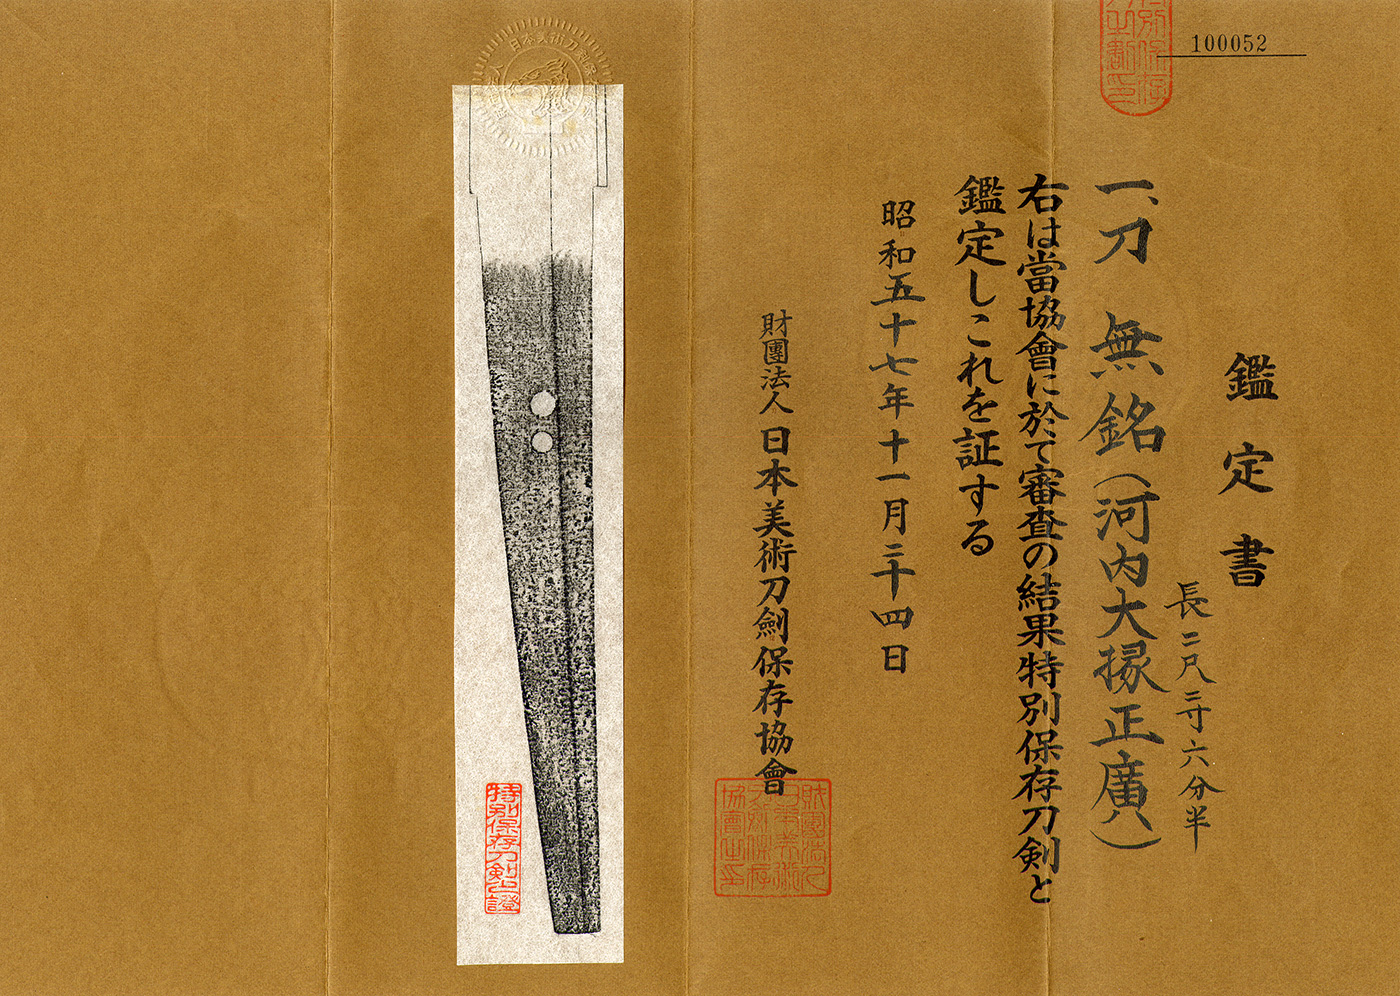 100052
鑑定書
長二尺三寸六分半
一、刀 無銘（河内大掾正廣）
右は當協會に於て審査の結果特別保存刀剣と
鑑定しこれを証する
昭和五十七年十一月二十四日
財團法人日本美術刀劍保存協會
財團法人日本美術刀剣保存協會之印
特別保存刀剣之證
日本美術刀剣保